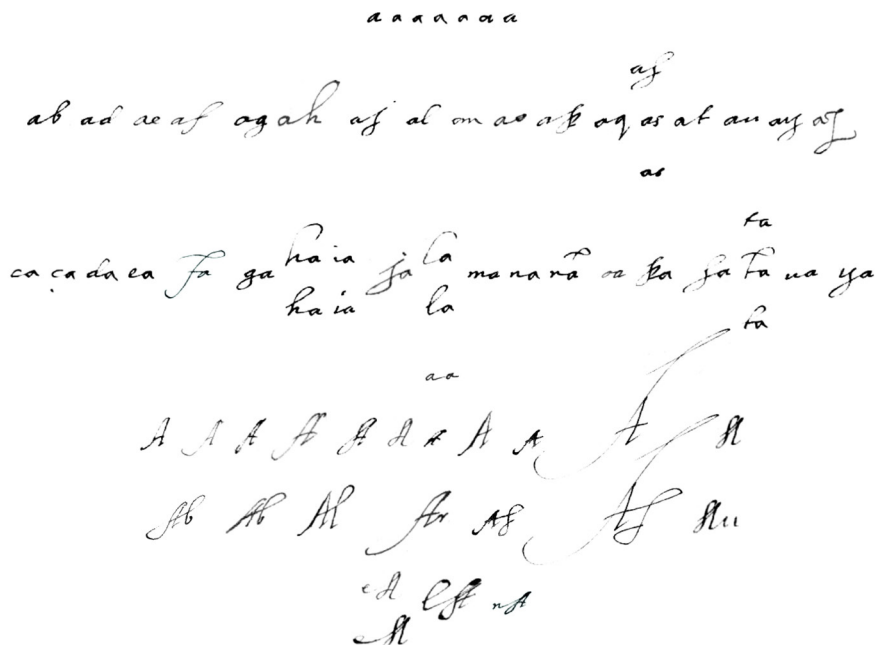 a a a a a a a
as
ab ad ae af ag ah aj al am ao ap aq as at au ay az
as
ta
ha ia la
ca ça da ea fa ga ja ma na ña oa pa sa ta ua ya
ha ia la
ta
aa
A A A A A A A A A A A
Ab Ab Al Ar As As Au
eA
lA nA